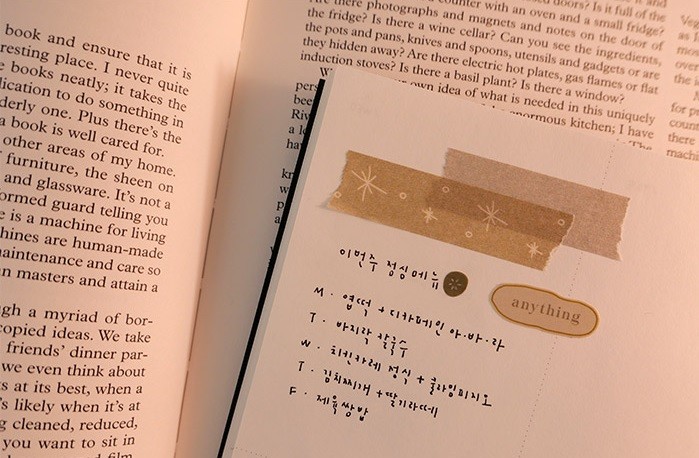 book and ensure that it is
resting place. I never quite
books neatly; it takes the
lication to do something in
derly one. Plus there's the
a book is well cared for.
other areas of my home.
furniture, the sheen on
and glassware. It's not a
formed guard telling you
e is a machine for living
chines are human-made
maintenance and care so
n masters and attain a
gh a myriad of bor-
copied ideas. We take
friends' dinner par-
we even think about
s at its best, when a
's likely when it's at
g cleaned, reduced,
you want to sit in
counter with an oven and a small fridge?
Are there photographs and magnets and notes on the door of
the fridge? Is there a wine cellar? Can you see the ingredients,
the pots and pans, knives and spoons, utensils and gadgets or are
they hidden away? Are there electric hot plates, gas flames or flat
induction stoves? Is there a basil plant? Is there a window?
own idea of what is needed in this uniquely
enormous kitchen; I have
The
이번주 점심메뉴
anything
M · 엽떡 + 디카페인 아·바·라
T · 바지락 칼국수
W · 치킨카레 정식 + 쿨라임피지오
T · 김치찌개 + 딸기라떼
F · 제육쌈밥